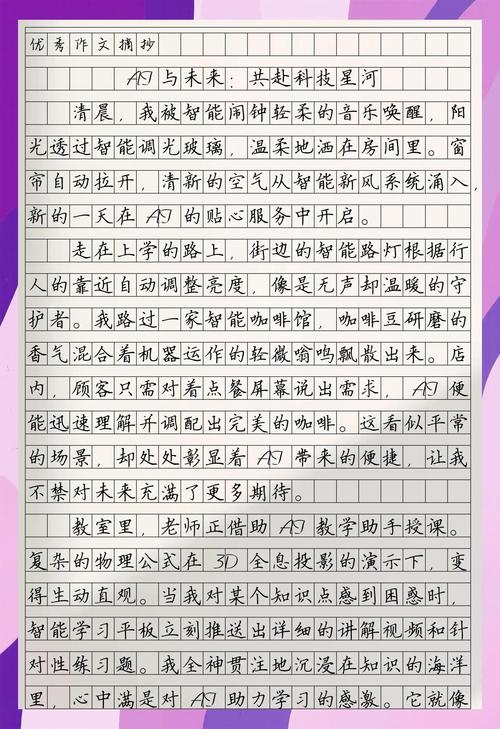 优秀作文摘抄
AI与未来：共赴科技星河
清晨，我被智能闹钟轻柔的音乐唤醒，阳
光透过智能调光玻璃，温柔地洒在房间里。窗
帘自动拉开，清新的空气从智能新风系统涌入，
新的一天在AI的贴心服务中开启。
走在上学的路上，街边的智能路灯根据行
人的靠近自动调整亮度，像是无声却温暖的守
护者。我路过一家智能咖啡馆，咖啡豆研磨的
香气混合着机器运作的轻微嗡鸣飘散出来。店
内，顾客只需对着点餐屏幕说出需求，AI便
能迅速理解并调配出完美的咖啡。这看似平常
的场景，却处处彰显着AI带来的便捷，让我
不禁对未来充满了更多期待。
教室里，老师正借助AI教学助手授课。
复杂的物理公式在3D全息投影的演示下，变
得生动直观。当我对某个知识点感到困惑时，
智能学习平板立刻推送出详细的讲解视频和针
对性练习题。我全神贯注地沉浸在知识的海洋
里，心中满是对AI助力学习的感激。它就像